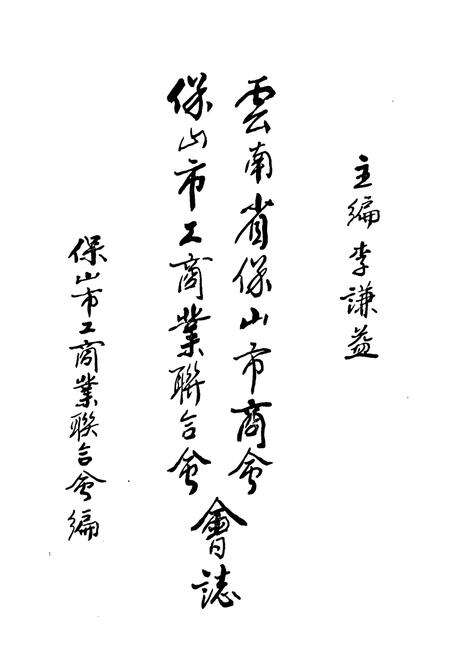 主编李謙益
雲南省保山市商会
保山市工商業聯合会
會誌
保山市工商業联合会编